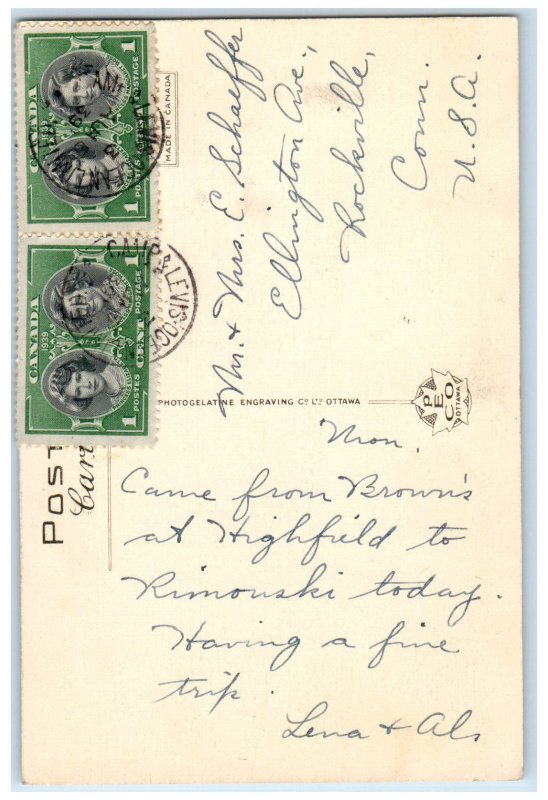 CANADA
1939
1 POSTES CENT POSTAGE 1
CANADA
1939
1 POSTES CENT POSTAGE 1
CAMP & LEVIS
MADE IN CANADA
Mr. & Mrs. E. Schaeffer
Ellington Ave.,
Rockville,
Conn.
U.S.A.
PHOTOGELATINE ENGRAVING Co. LTD. OTTAWA
PECO
OTTAWA
POST
Car
Mon.
Came from Brown's
at Highfield to
Rimouski today.
Having a fine
trip.
Lena & Als